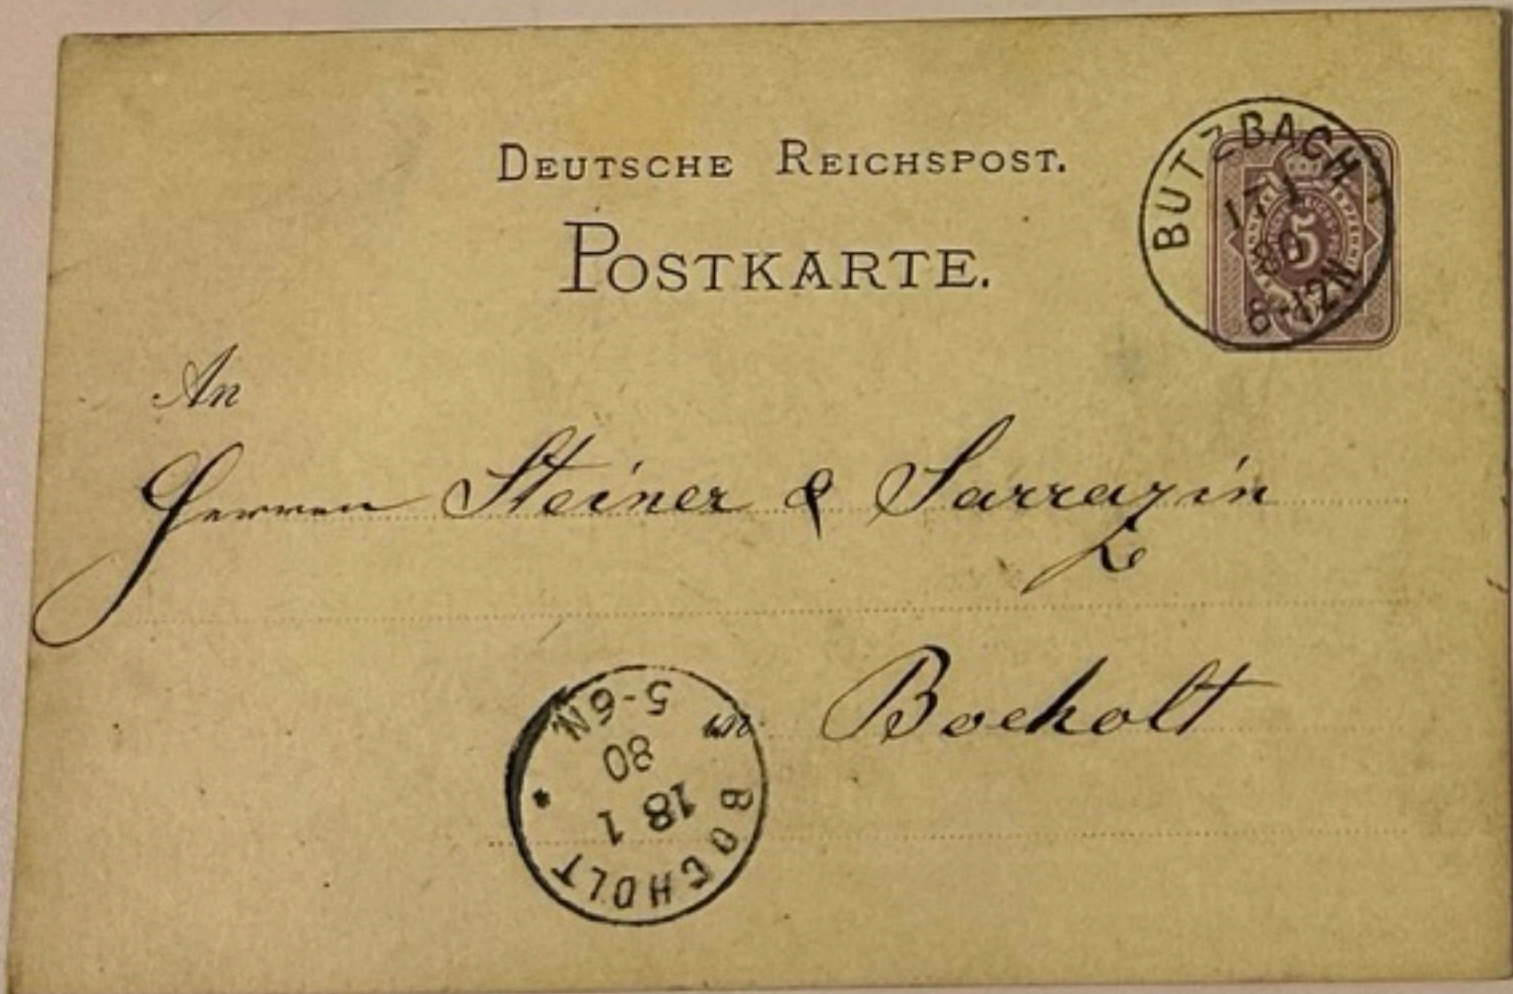 DEUTSCHE REICHSPOST.
POSTKARTE.
BUTZBACH
17 1
80
8-12N
5
An
Herren Steiner & Sarrazin
in Bocholt
BOCHOLT
18 1
80
5-6N
*